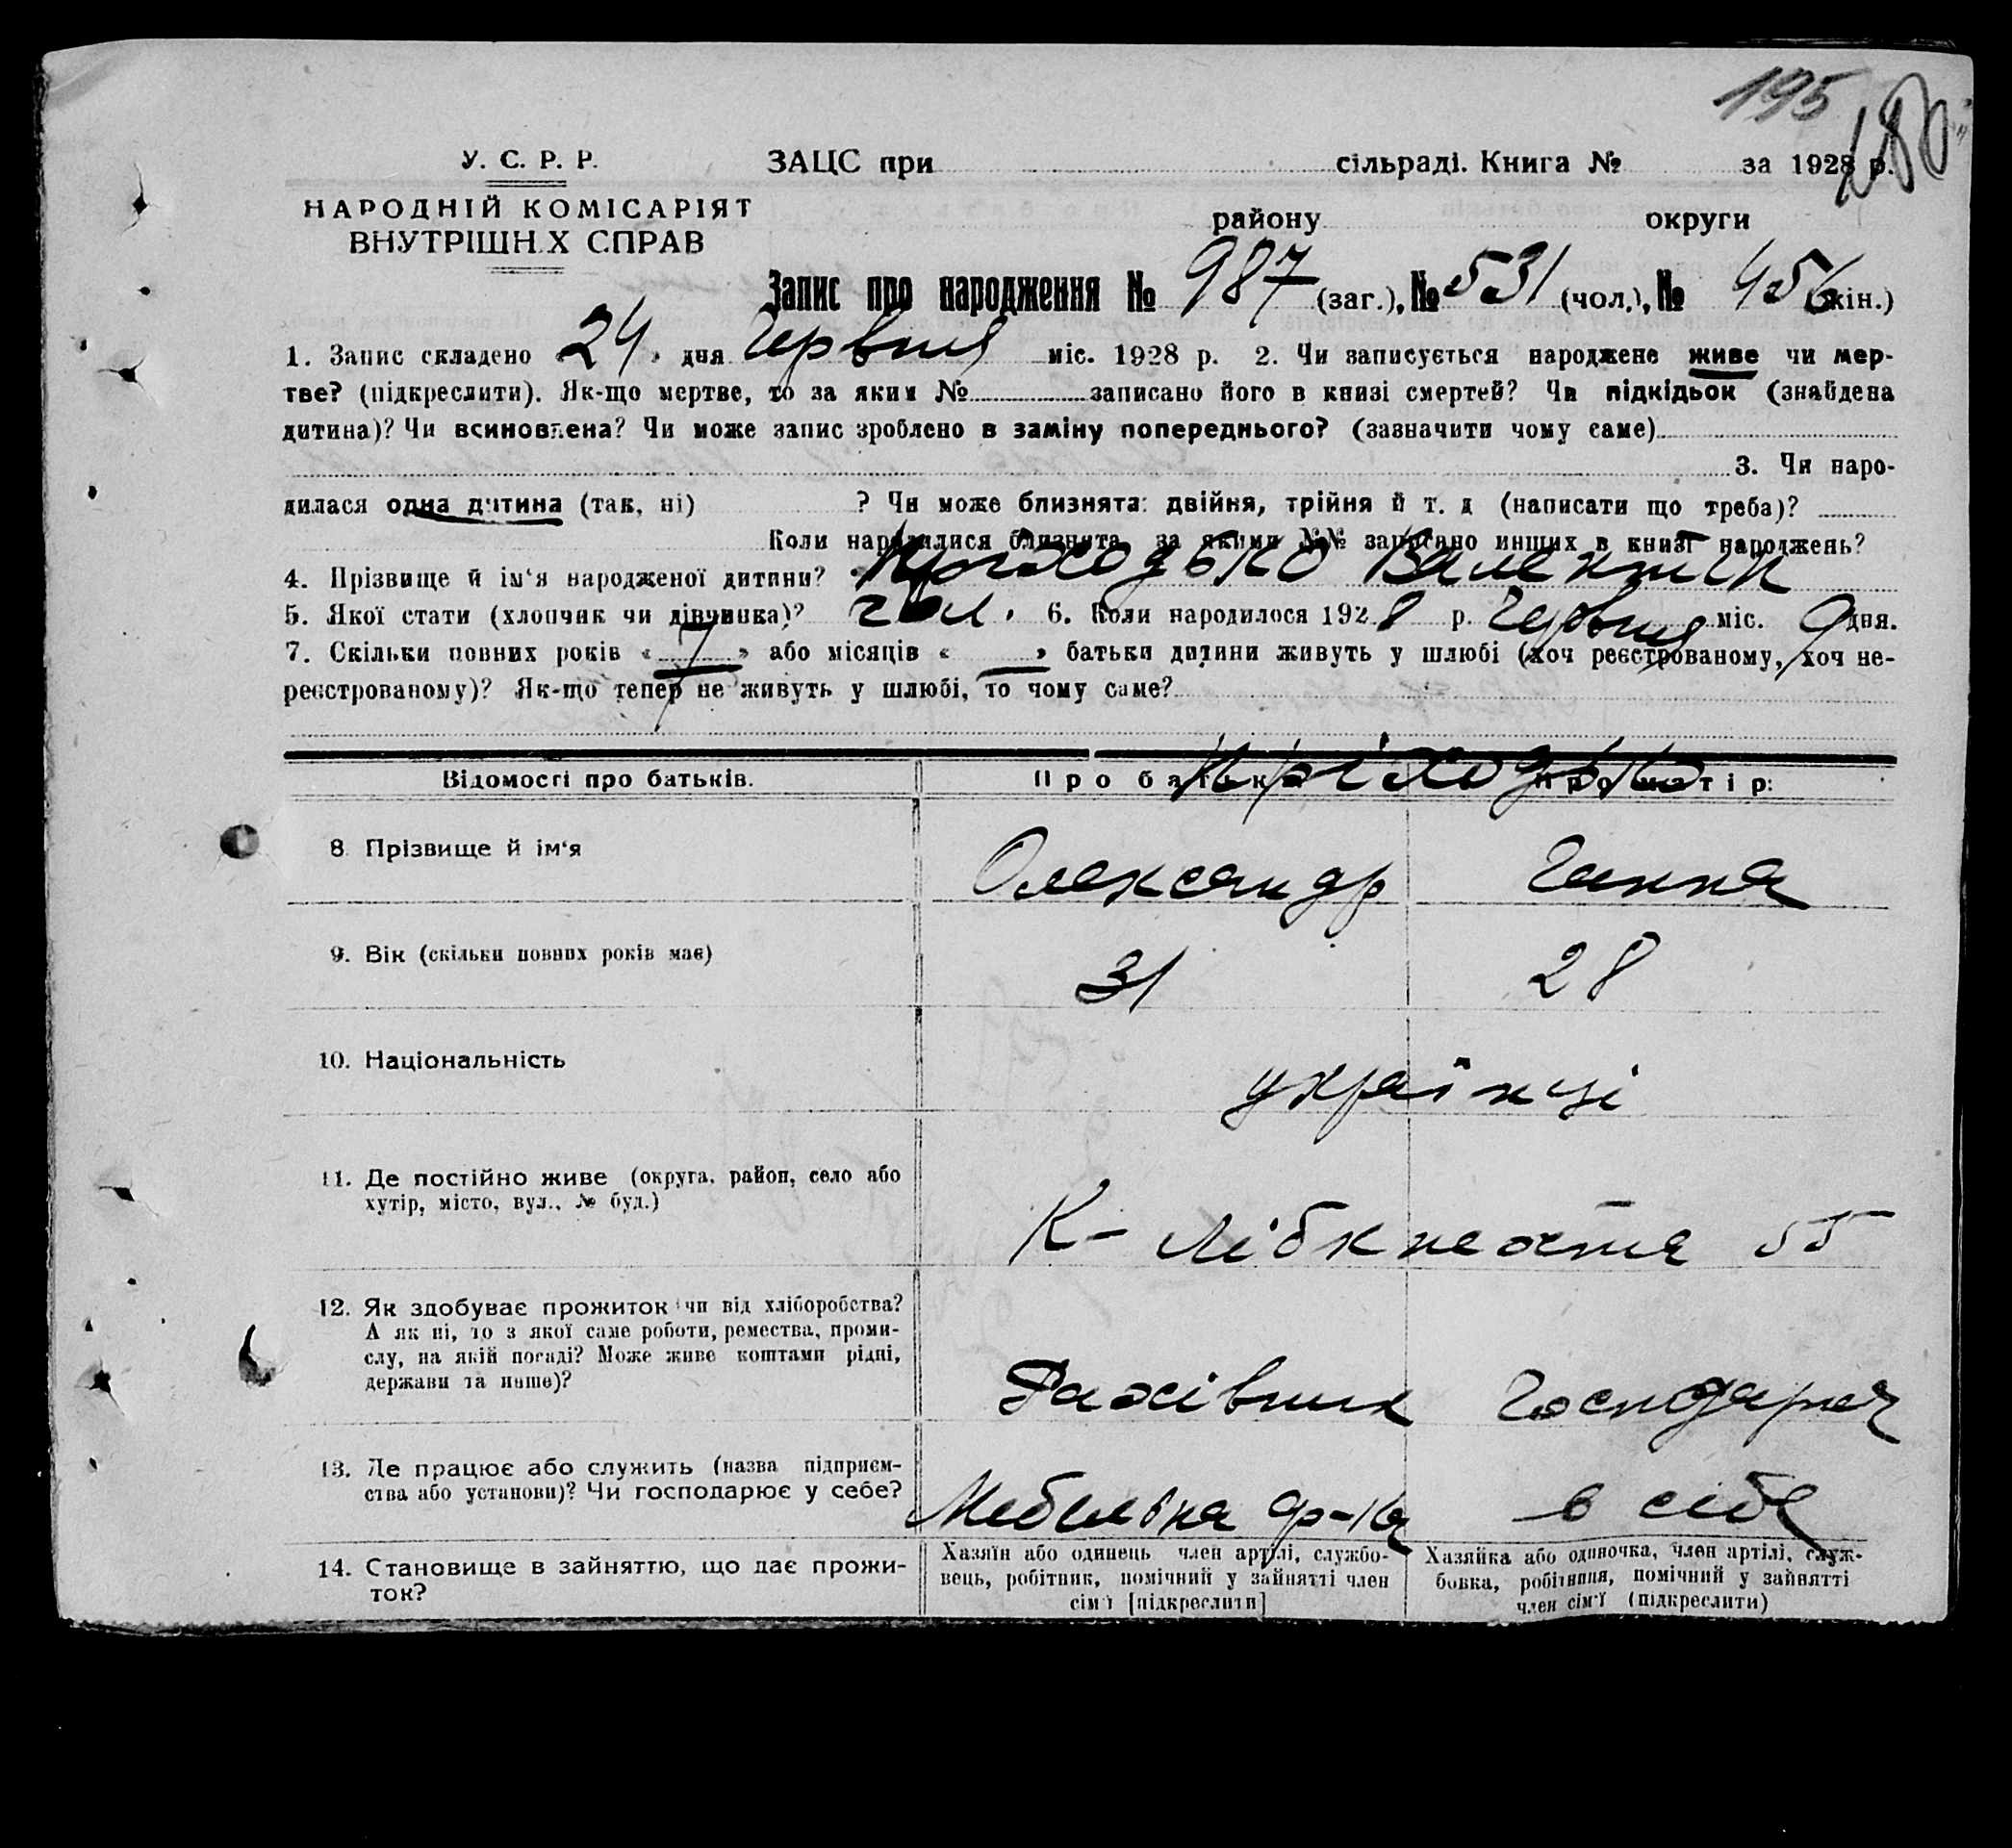 195
180
У. С. Р. Р.
ЗАЦС при сільраді. Книга № за 1928 р.
НАРОДНІЙ КОМІСАРІЯТ
ВНУТРІШН.Х СПРАВ
району округи
Запис про народження № 987 (заг.), № 531 (чол.), № 456 (жін.)
1. Запис складено „24" дня Червня міс. 1928 р. 2. Чи записується народжене живе чи мер-
тве? (підкреслити). Як-що мертве, то за яким № записано його в книзі смертей? Чи підкідьок (знайдена
дитина)? Чи всиновлена? Чи може запис зроблено в заміну попереднього? (зазначити чому саме)
3. Чи наро-
дилася одна дитина (так, ні) ? Чи може близнята: двійня, трійня й т. д (написати що треба)?
Коли народилися близнята, за якими №№ записано инших в книзі народжень?
4. Прізвище й ім'я народженої дитини? Приходько Валентин
5. Якої стати (хлопчик чи дівчинка)? чол. 6. Коли народилося 1928 р. Червня міс. 9 дня.
7. Скільки повних років « 7 » або місяців « » батьки дитини живуть у шлюбі (хоч реєстрованому, хоч не-
реєстрованому)? Як-що тепер не живуть у шлюбі, то чому саме?
Приходько
Відомості про батьків. Про батька Про матір:
8. Прізвище й ім'я Олександр Ганна
9. Вік (скільки повних років має) 31 28
10. Національність українці
11. Де постійно живе (округа, район, село або
хутір, місто, вул., № буд.)
К-Лібкнехта 55
12. Як здобуває прожиток чи від хліборобства?
А як ні, то з якої саме роботи, ремества, проми-
слу, на якій посаді? Може живе коштами рідні,
держави та инше)?
Рахівник Господарка
13. Де працює або служить (назва підприєм-
ства або установи)? Чи господарює у себе?
Мебельна ф-ка в сібе
14. Становище в зайняттю, що дає прожи-
ток?
Хазяїн або одинець член артілі, службо-
вець, робітник, помічний у зайнятті член
сім'ї [підкреслити]
Хазяйка або одиночка, член артілі, служ-
бовка, робітниця, помічний у зайнятті
член сім'ї (підкреслити)